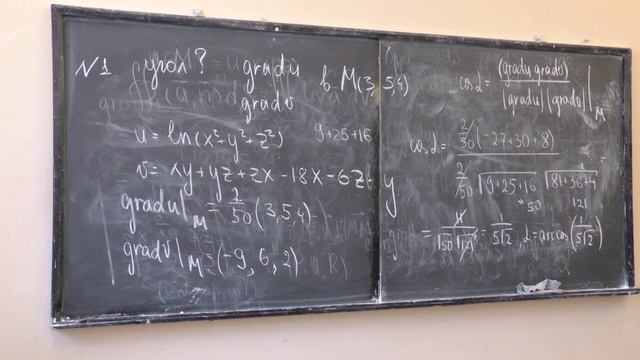 N1 угол? u gradu
gradv в M(3,5,4)
u = ln(x²+y²+z²) 9+25+16
v = xy+yz+zx-18x-6z+y
gradu|M = 2/50 (3,5,4)
gradv|M = (-9, 6, 2)
cos α = (gradu gradv) / |gradu| |gradv| |M
cos α = 2/50 (-27+30+8) / 2/50 √9+25+16 √81+36+4 =
50 121
= 11/√50 √121 = 1/5√2, α = arccos(1/5√2)